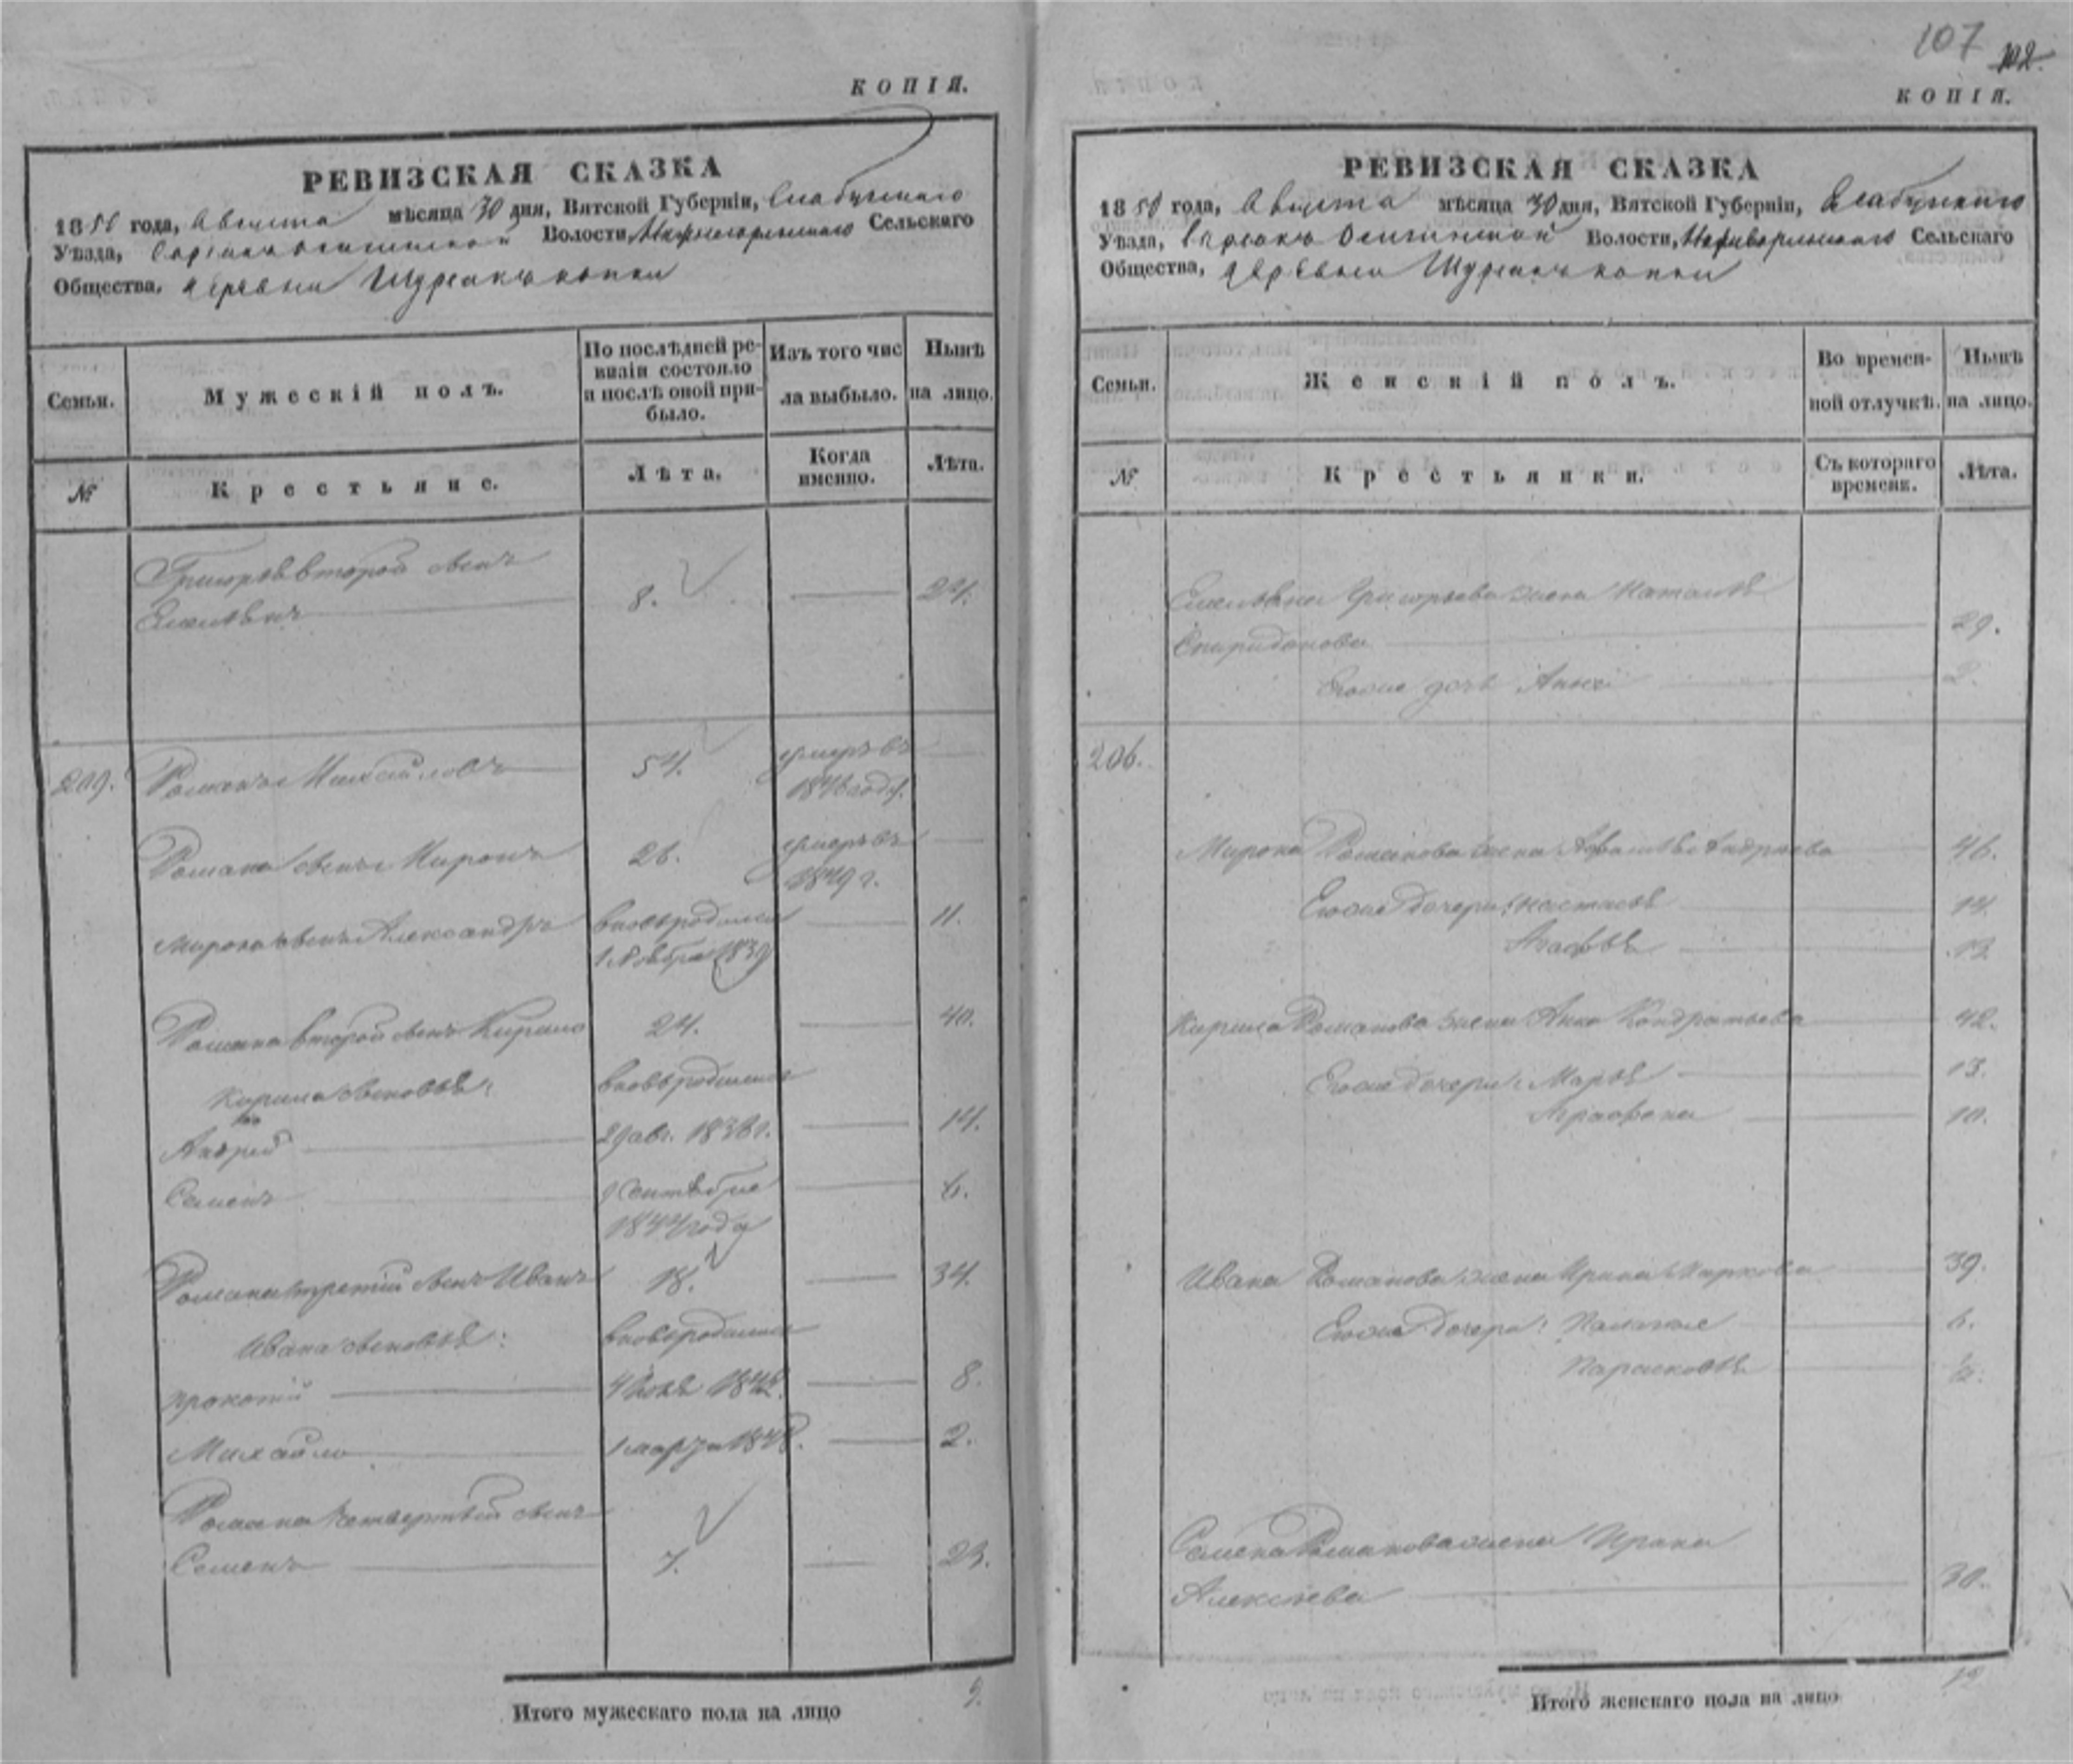 КОПІЯ.
РЕВИЗСКАЯ СКАЗКА
1850 года, Августа мѣсяца 30 дня, Вятской Губерніи, Елабужскаго
Уѣзда, Волости, Сельскаго
Общества, деревни
Семьи.
Мужескій полъ.
По послѣдней ре-
визіи состояло
и послѣ оной при-
было.
Изъ того чис
ла выбыло.
Нынѣ
на лицо.
№
Крестьяне.
Лѣта.
Когда
именно.
Лѣта.
Григорья второй сынъ
Емельянъ 8. 24.
209. Романъ Михайловъ 54. умеръ въ
1846 году.
Романа сынъ Миронъ 26. умеръ въ
1849 г.
Мирона сынъ Александръ вновь родился 11.
1 Ноября 1839
Романа второй сынъ Кирило 24. 40.
Кирила сыновья: вновь родились
Андрей 29 авг. 1836 г. 14.
Семенъ 9 Сентября 6.
1844 году
Романа третій сынъ Иванъ 18. 34.
Ивана сыновья: вновь родились
Прокопій 1842. 8.
Михайло 1 марта 1848. 2.
Романа четвертый сынъ
Семенъ 7. 23.
Итого мужескаго пола на лицо 9.
107 102.
КОПІЯ.
РЕВИЗСКАЯ СКАЗКА
1850 года, Августа мѣсяца 30 дня, Вятской Губерніи, Елабужскаго
Уѣзда, Волости, Сельскаго
Общества, деревни
Семьи.
Женскій полъ.
Во времен-
ной отлучкѣ.
Нынѣ
на лицо.
№
Крестьянки.
Съ котораго
времени.
Лѣта.
Емельяна Григорьева жена Наталья
Спиридонова 29.
Его же дочь Анна 2.
206.
Мирона Романова жена Андреева 46.
Его же дочери: Настасья 14.
Агафья 13.
Кирила Романова жена Анна Кондратьева 42.
Его же дочери: Марья 13.
Аграфена 10.
Ивана Романова жена Ирина Маркова 39.
Его же дочери: Палагея 6.
Парасковья
Семена Романова жена Ирина
Алексѣева 30.
Итого женскаго пола на лицо